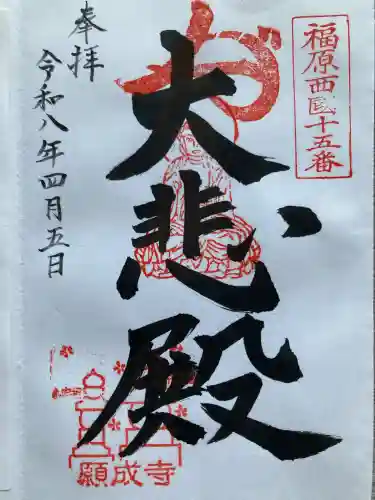 福原西国十五番
大悲殿
奉拝
令和八年四月五日
願成寺